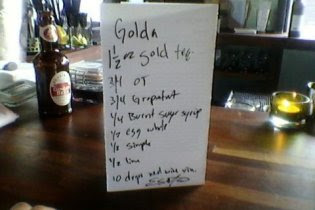 Golda
1 1/2 oz gold teq
3/4 OJ
3/4 Grapefruit
1/4 Burnt sugar syrup
1/2 egg white
1/2 simple
1/2 lime
10 drops red wine vin.